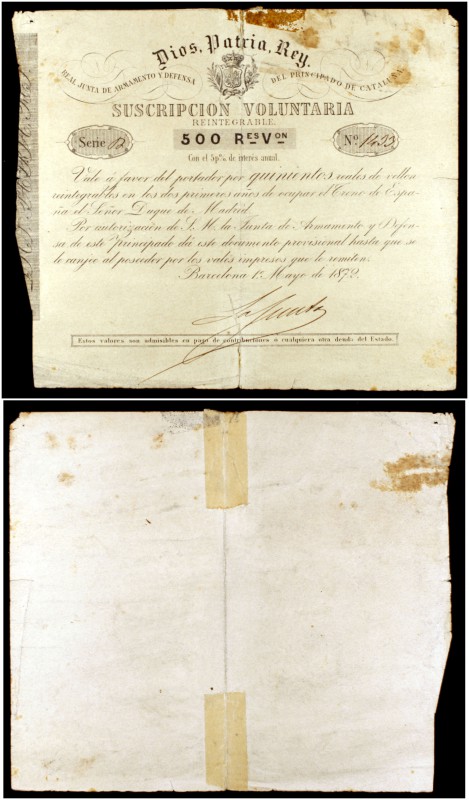 Dios, Patria, Rey.
REAL JUNTA DE ARMAMENTO Y DEFENSA DEL PRINCIPADO DE CATALUÑA
SUSCRIPCION VOLUNTARIA
REINTEGRABLE.
Serie B 500 R.ES V.ON N.º 1493
Con el 5 p% de interés anual.
Vale á favor del portador por quinientos reales de vellon
reintegrables en los dos primeros años de ocupar el Trono de Espa-
ña el Señor Duque de Madrid.
Por autorizacion de S. M. la Junta de Armamento y Defen-
sa de este Principado dá este documento provisional hasta que se
le canjée al poseedor por los vales impresos que le remiten.
Barcelona 1.º Mayo de 1872.
La Junta
Estos valores son admisibles en pago de contribuciones o cualquiera otra deuda del Estado.